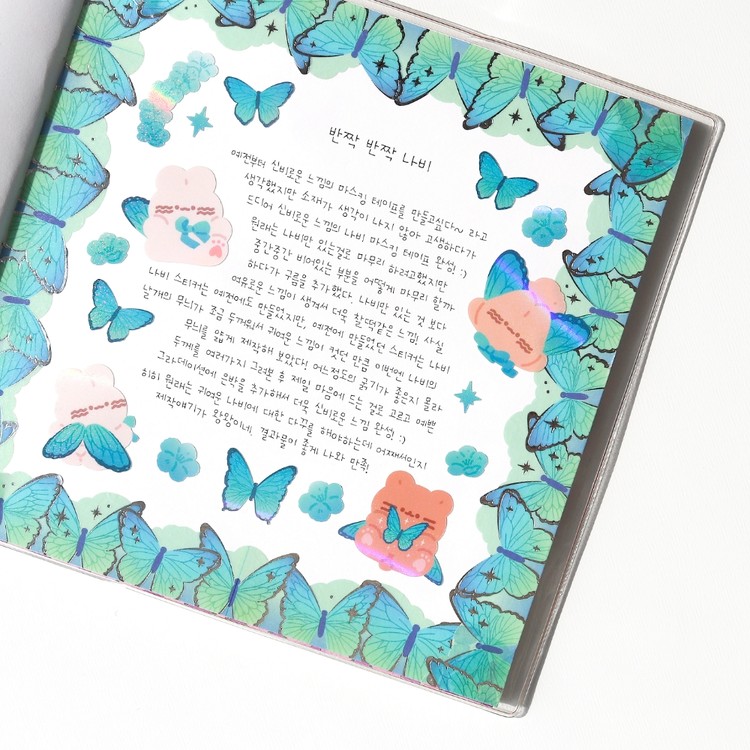 반짝 반짝 나비
예전부터 신비로운 느낌의 마스킹 테이프를 만들고싶다~ 라고
생각했지만 소재가 생각이 나지 않아 고생하다가
드디어 신비로운 느낌의 나비 마스킹 테이프 완성! :)
원래는 나비만 있는걸로 마무리 하려고했지만
중간중간 비어있는 부분을 어떻게 마무리 할까
하다가 구름을 추가했다. 나비만 있는 것 보다
여유로운 느낌이 생겨서 더욱 찰떡같은 느낌! 사실
나비 스티커는 예전에도 만들었지만, 예전에 만들었던 스티커는 나비
날개의 무늬가 조금 두꺼워서 귀여운 느낌이 컸던 만큼 이번엔 나비의
무늬를 얇게 제작해 보았다! 어느정도의 굵기가 좋은지 몰라
두께를 여러가지 그려본 후 제일 마음에 드는 걸로 고르고 예쁜
그라데이션에 은박을 추가해서 더욱 신비로운 느낌 완성! :)
히히 원래는 귀여운 나비에 대한 다꾸를 해야하는데 어째서인지
제작얘기가 왕왕이네 결과물이 좋게 나와 만족!